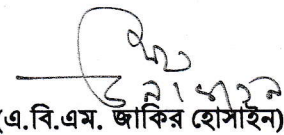 (এ.বি.এম. জাকির হোসাইন)